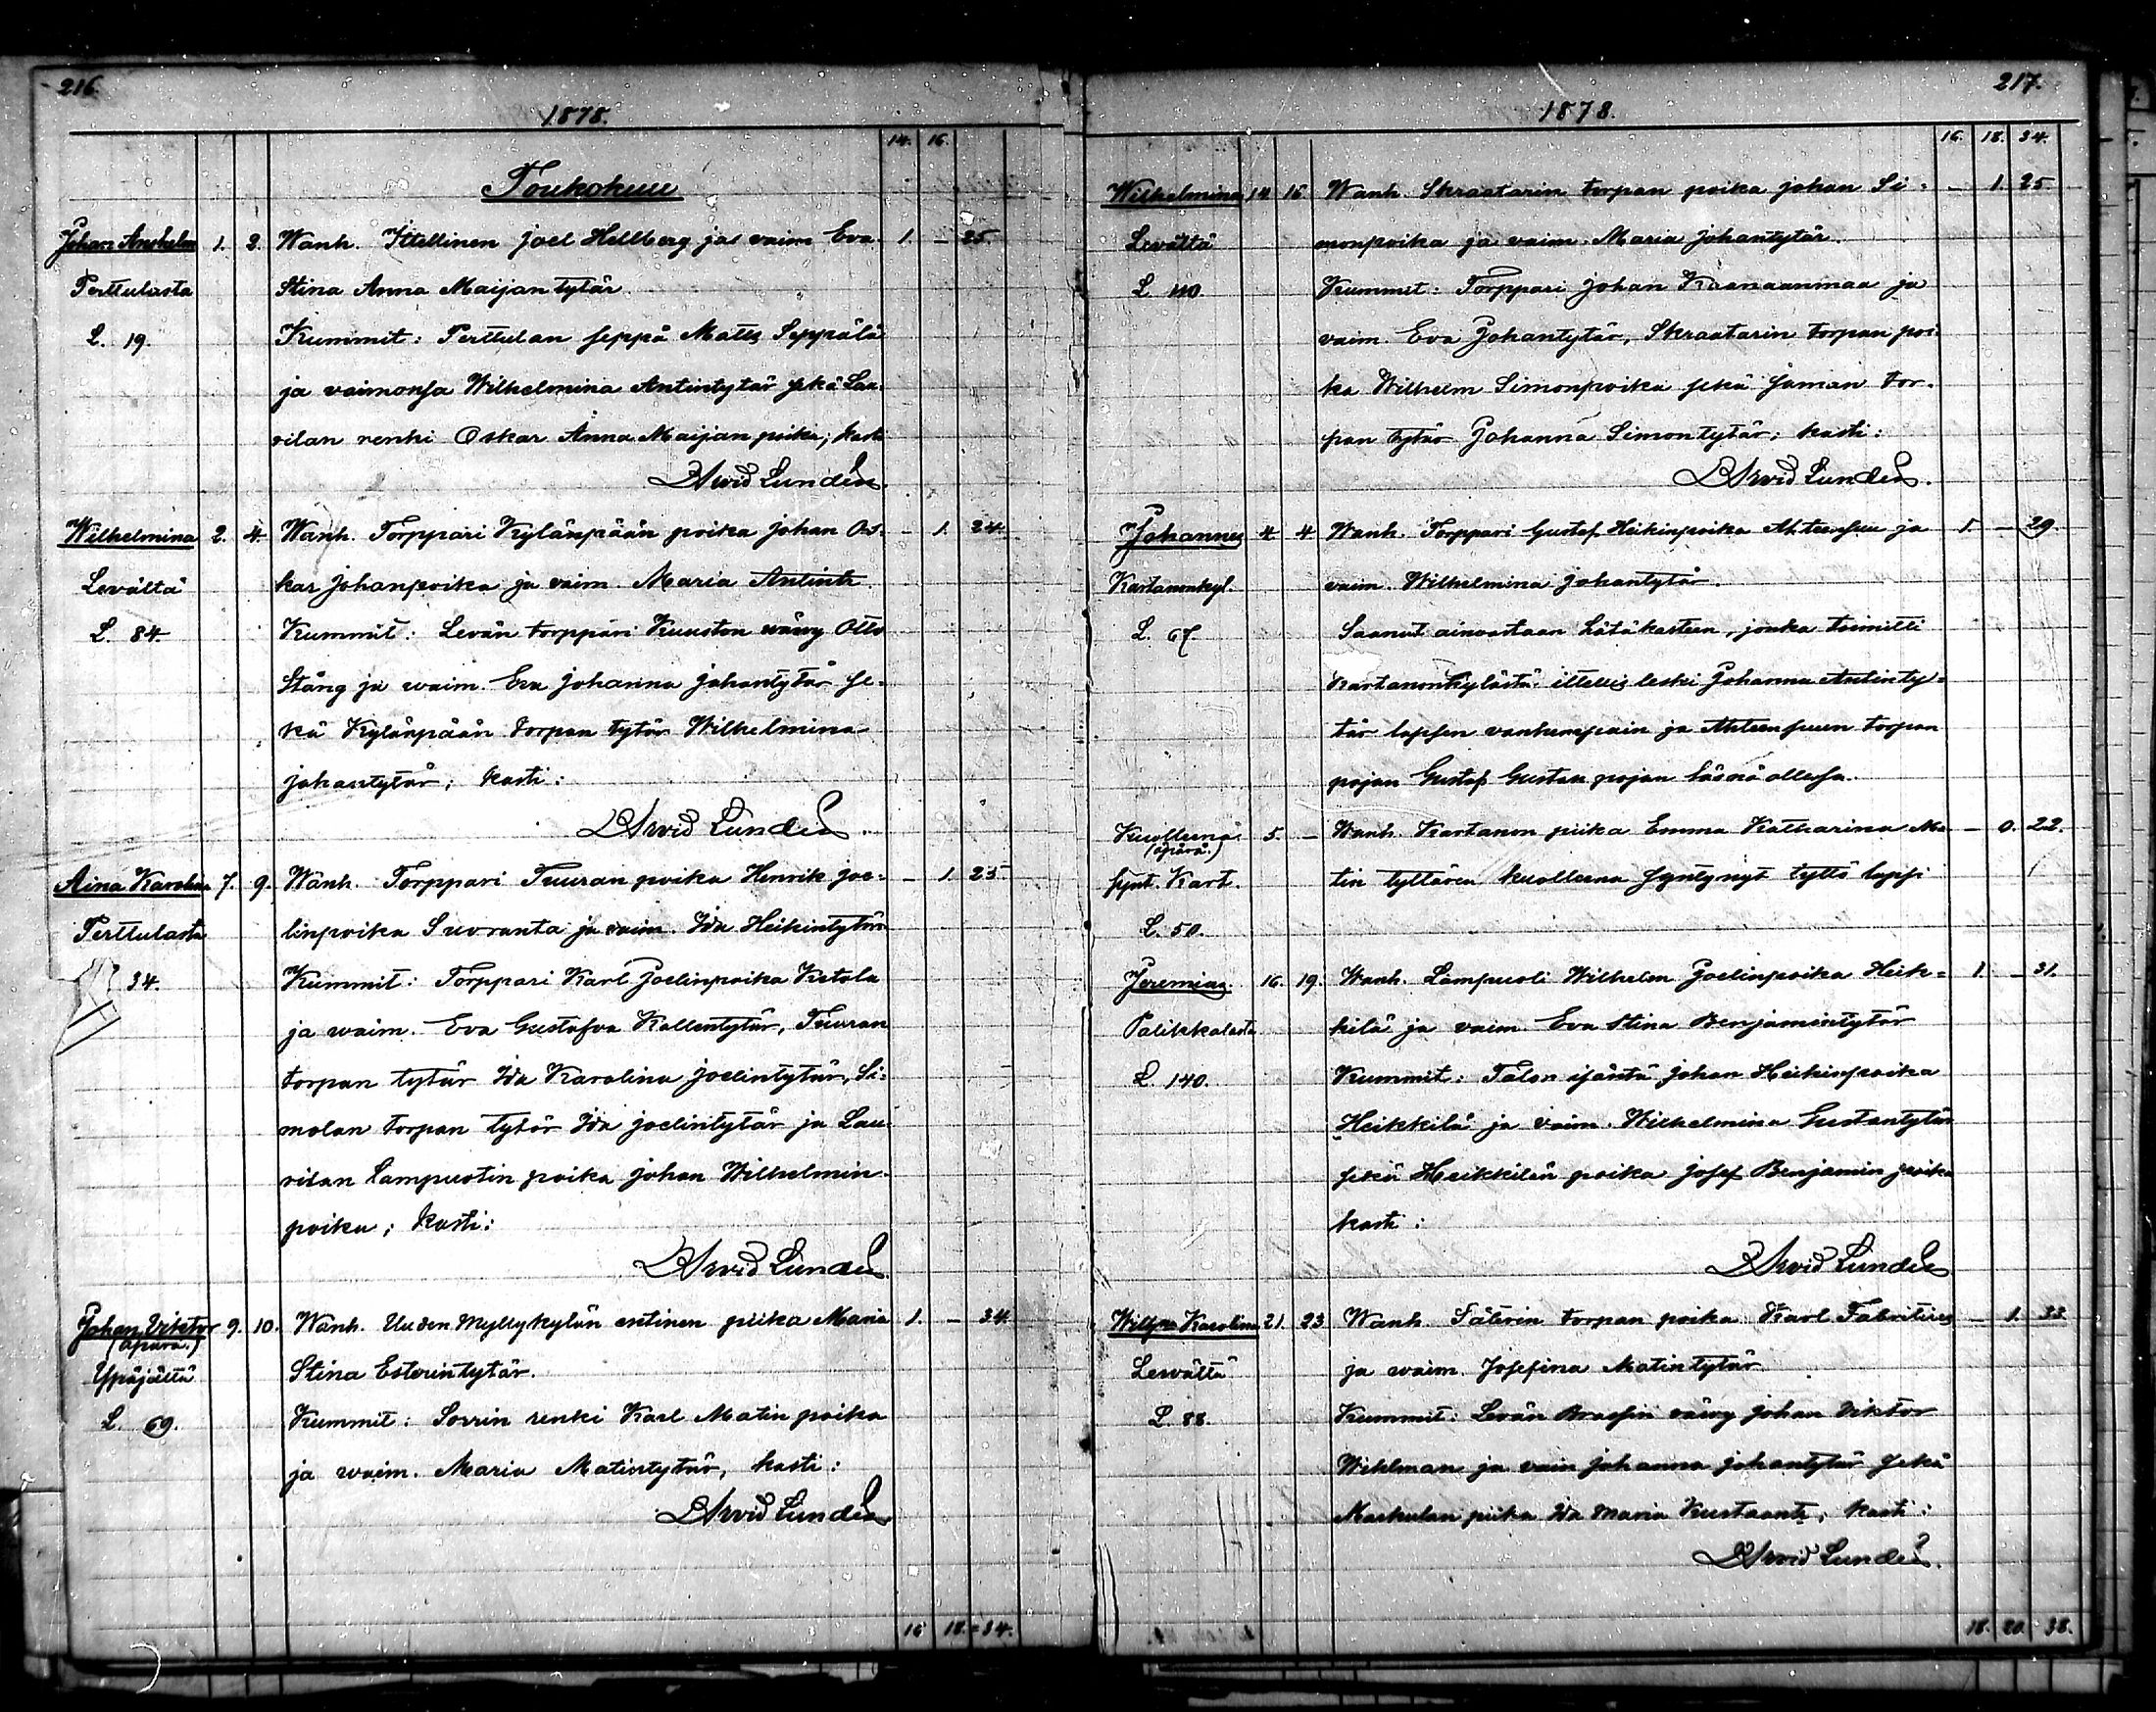 216.
1878.
14. 16.
Toukokuu
Johan Anshelm 1. 2. Wanh. Itellinen Joel Hellberg ja vaim Eva 1. - 25.
Perttulasta Stina Anna Maijantytär
L. 19. Kummit: Perttulan seppä Matts Seppälä
ja vaimonsa Wilhelmina Antintytär sekä Lau-
rilan renki Oskar Anna Maijanpoika; kasti
Arvid Lundén.
Wilhelmina 2. 4. Wanh. Torppari Kylänpään poika Johan Os- - 1. 24.
Levältä kar Johanpoika ja vaim. Maria Antintr
L. 84. Kummit: Levän torppari Kuuston vävy Otto
Stång ja waim. Eva Johanna Johantytär se-
kä Kylänpään torpan tytär Wilhelmina
Johantytär; kasti:
Arvid Lundén.
Aina Karolina 7. 9. Wanh. Torppari Tuuran poika Henrik Joe- - 1. 25
Perttulasta linpoika Suoranta ja vaim. Ida Heikintytär
34. Kummit: Torppari Karl Joelinpoika Ketola
ja waim. Eva Gustafva Kallentytär, Tuuran
torpan tytär Ida Karolina Joelintytär, Si-
molan torpan tytär Ida Joelintytär ja Lau-
rilan Lampuotin poika Johan Wilhelmin-
poika; kasti:
Arvid Lundén
Johan Viktor 9. 10. Wanh. Uuden Myllykylän entinen piika Maria 1. - 34.
(äpärä.)
Ypäjältä Stina Esterintytär.
L. 69. Kummit: Sorrin renki Karl Matinpoika
ja waim. Maria Matintytär, kasti:
Arvid Lundén
16 18. = 34.
217.
1878.
16. 18. 34.
Wilhelmina 14 16 Wanh. Skraatarin torpan poika Johan Si- - 1. 25.
Levältä monpoika ja vaim. Maria Johantytär.
L. 110. Kummit: Torppari Johan Kaanaanmaa ja
vaim. Eva Johantytär, Skraatarin torpan poi-
ka Wilhelm Simonpoika sekä saman tor-
pan tytär Johanna Simontytär; kasti:
Arvid Lundén.
Johannes 4 4 Wanh. Torppari Gustaf Heikinpoika Ahteensuu ja 1. - 29.
Kartanonkyl. vaim. Wilhelmina Johantytär.
L. 67. Saanut ainoastaan hätäkasteen, jonka toimitti
Kartanonkylästä ittellis leski Johanna Antinty-
tär lapsen vanhempain ja Ahteensuun torpan
pojan Gustaf Gustaanpojan läsnä ollessa.
Kuolleena 5. - Wanh. Kartanon piika Emma Katharina Ma- - 0. 22.
(äpärä.)
synt. Kart. tin tyttären kuolleena syntynyt tyttö lapsi
L. 50.
Jeremias. 16. 19. Wanh. Lampuoti Wilhelm Joelinpoika Heik- 1. - 31.
Palikkalasta kilä ja vaim. Eva Stina Benjamintytär
L. 140. Kummit: Talon isäntä Johan Heikinpoika
Heikkilä ja vaim. Wilhelmina Gustantytär
sekä Heikkilän poika Josef Benjaminpoika
kasti:
Arvid Lundén
Karolina 21. 23 Wanh. Säterin torpan poika Karl Fabritius - 1. 33.
Levältä ja waim. Josefina Matintytär
L 88. Kummit: Levän vävy Johan Viktor
Wihlman ja vaim Johanna Johantytär sekä
piika Ida Maria; kasti:
Arvid Lundén.
18. 20. 38.